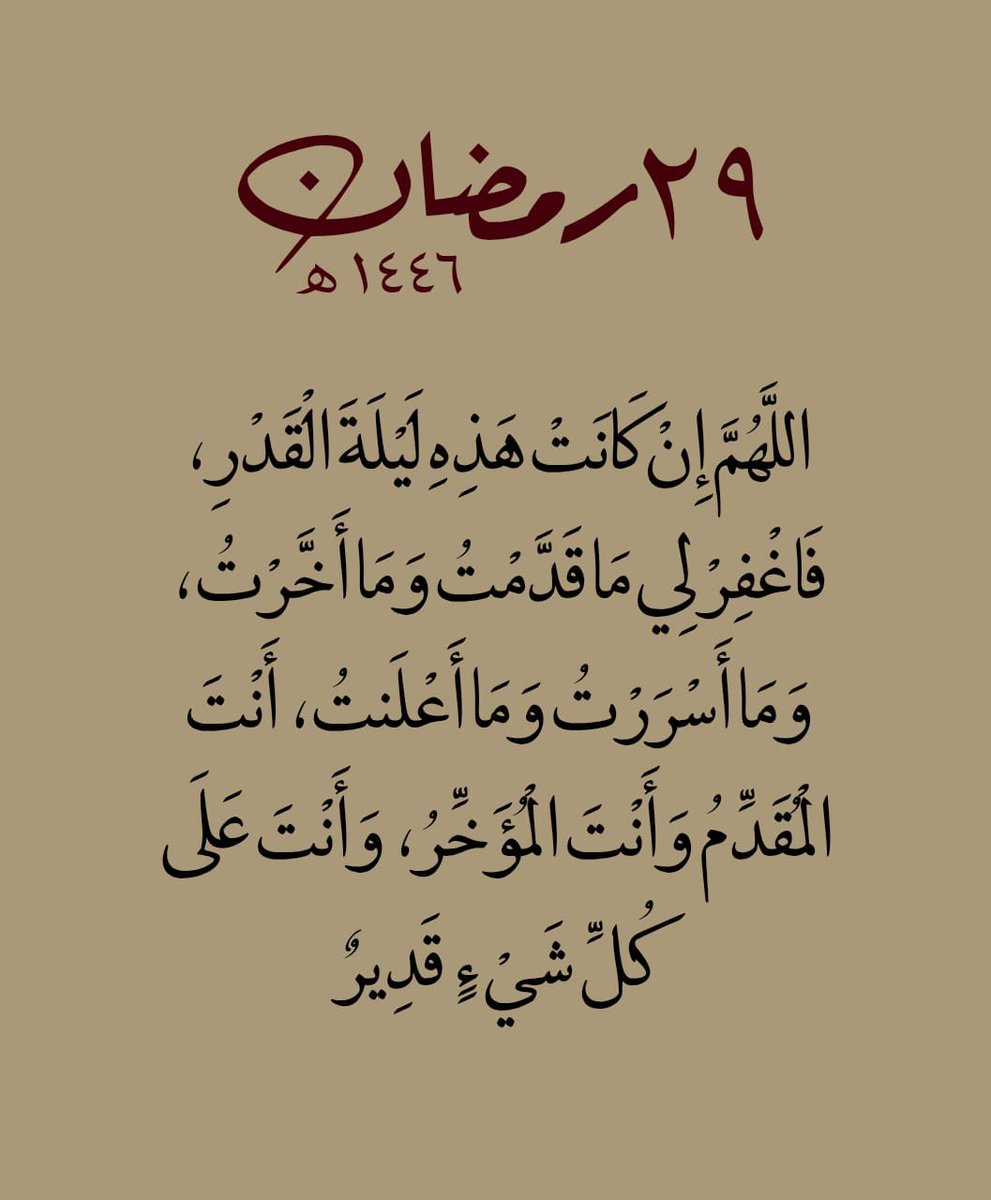 ٢٩ رمضان
١٤٤٦ هـ
اللَّهُمَّ إِنْ كَانَتْ هَذِهِ لَيْلَةَ الْقَدْرِ،
فَاغْفِرْ لِي مَا قَدَّمْتُ وَمَا أَخَّرْتُ،
وَمَا أَسْرَرْتُ وَمَا أَعْلَنتُ، أَنْتَ
الْمُقَدِّمُ وَأَنْتَ الْمُؤَخِّرُ، وَأَنْتَ عَلَى
كُلِّ شَيْءٍ قَدِيرٌ